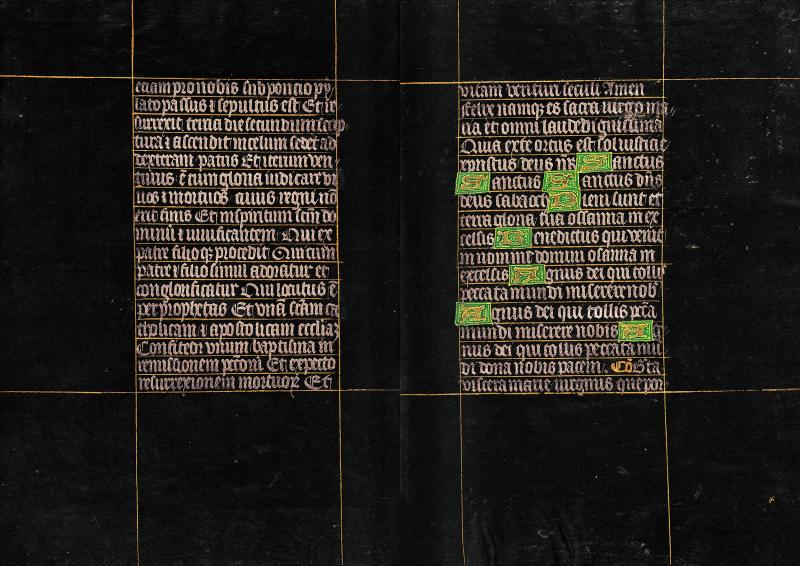 etiam pro nobis sub poncio py
lato passus ⁊ sepultus est Et re
surrexit tertia die secundum scrip
turas ⁊ ascendit in celum sedet ad
dexteram patris Et iterum ven
turus ē cum gloria iudicare vi
uos ⁊ mortuos cuius regni nō
erit finis Et in spiritum scm̄ do
minū ⁊ uiuificantem Qui ex
patre filioq; procedit Qui cum
patre ⁊ filio simul adoratur et
conglorificatur Qui locutus ē
per prophetas Et vnā sctām ca
tholicam ⁊ apostolicam eccliaʒ
Confiteor vnum baptisma in
remissionem pctōrū Et expecto
resurrexionem mortuoꝝ Et
vitam venturi seculi Amen
Felix namq; es sacra uirgo ma
ria et omni laude dignissima
Quia ex te ortus est sol iusticie
xpristus deus nr̄ Sanctus
Sanctus Sanctus dn̄s
deus sabaoth Pleni sunt ce
terra gloria tua osanna in ex
celsis Benedictus qui venit
in nomine domini osanna in
excelsis Agnus dei qui tollis
peccata mundi miserere nob̄
Agnus dei qui tollis pctā
mundi miserere nobis Ag
nus dei qui tollis peccata mū
di dona nobis pacem. Cō Bta
viscera marie uirginis que por